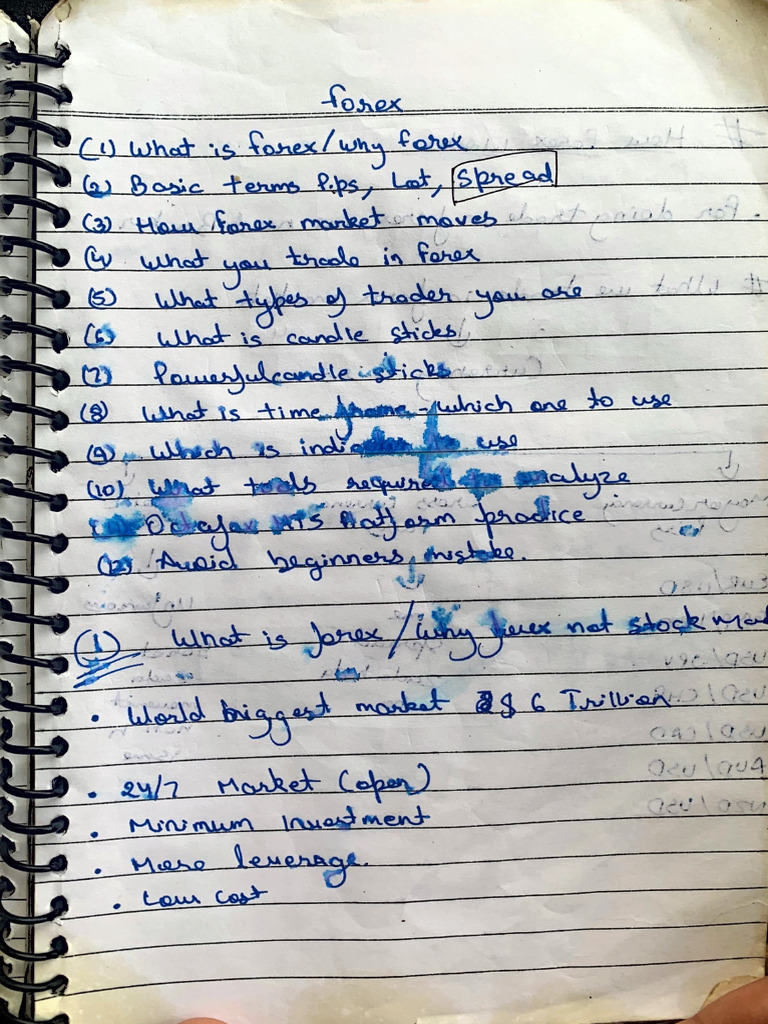 forex
(1) What is forex/why forex
(2) Basic terms Pips, Lot, Spread
(3) How forex market moves
(4) What you trade in forex
(5) What types of trader you are
(6) What is candle sticks
(7) Powerful candle sticks
(8) What is time frame - which one to use
(9) Which is use
(10) What tools required to analyze
Octafox Platform practice
(12) Avoid beginners mistake.
(1) What is forex/why forex not stock
• World biggest market $ 6 Trillion
• 24/7 Market (open)
• Minimum Investment
• More leverage.
• Low cost